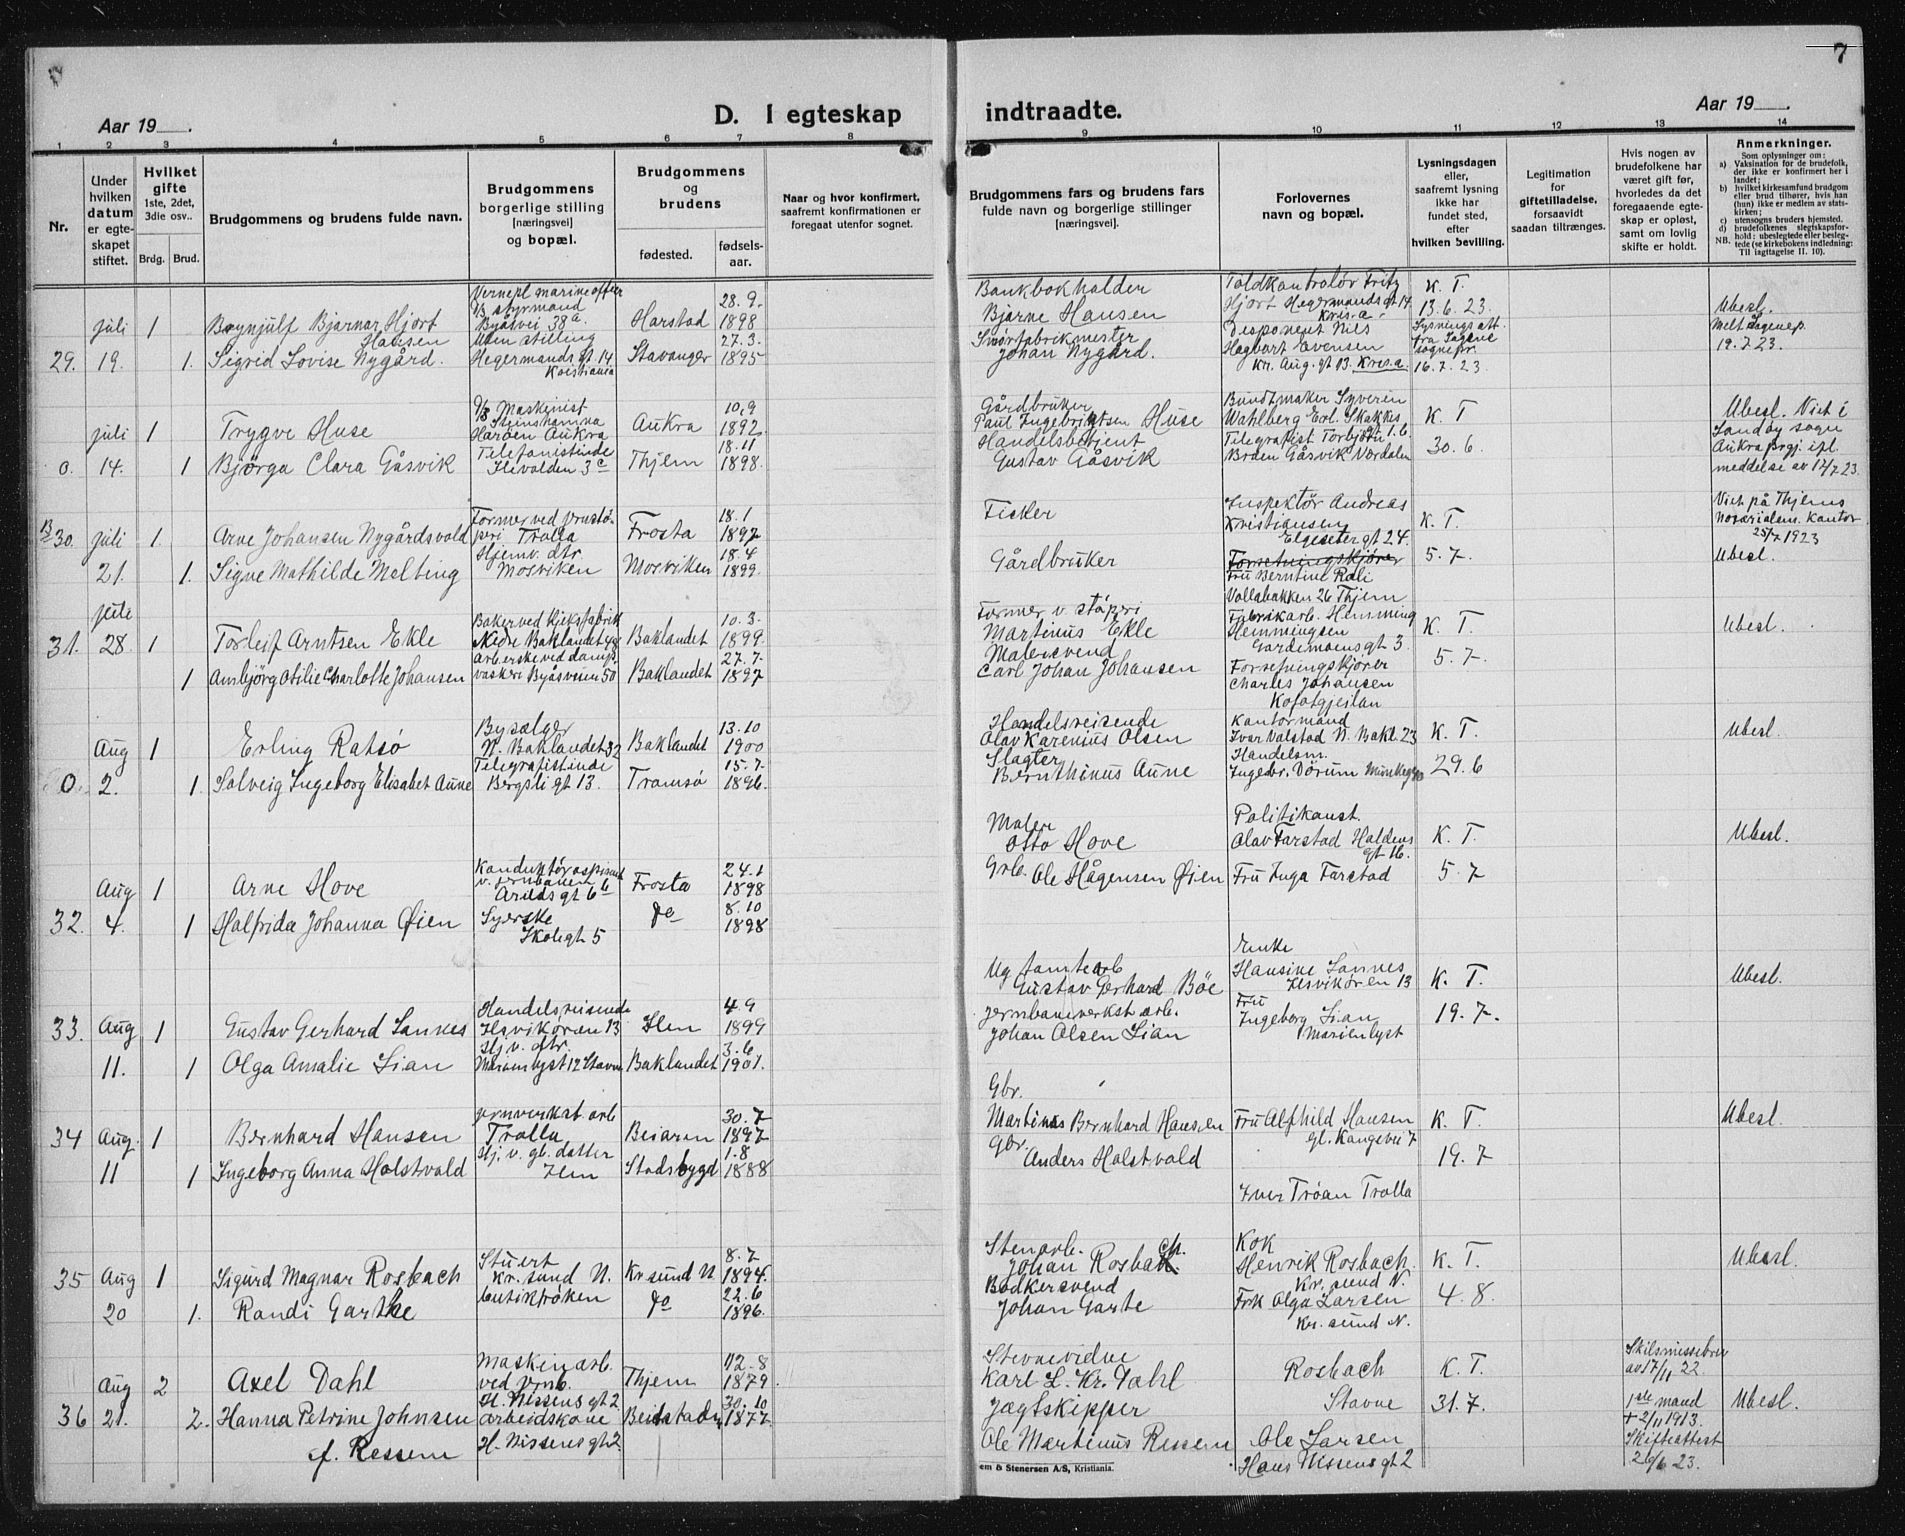 7
Aar 19
D. I egteskap
indtraadte.
Aar 19
1 2 3 4 5 6 7 8 9 10 11 12 13 14
Nr.
Under
hvilken
datum
er egte-
skapet
stiftet.
Hvilket
gifte
1ste, 2det,
3die osv..
Brdg. Brud.
Brudgommens og brudens fulde navn.
Brudgommens
borgerlige stilling
[næringsvei]
og bopæl.
Brudgommens
og
brudens
fødested.
fødsels-
aar.
Naar og hvor konfirmert,
saafremt konfirmationen er
foregaat utenfor sognet.
Brudgommens fars og brudens fars
fulde navn og borgerlige stillinger
[næringsvei].
Forlovernes
navn og bopæl.
Lysningsdagen
eller,
saafremt lysning
ikke har
fundet sted,
efter
hvilken bevilling.
Legitimation
for
giftetilladelse,
forsaavidt
saadan tiltrænges.
Hvis nogen av
brudefolkene har
været gift før,
hvorledes da det
foregaaende egte-
skap er opløst,
samt om lovlig
skifte er holdt.
Anmerkninger.
Som oplysninger om:
a) Vaksination for de brudefolk,
der ikke er konfirmert her i
landet;
b) hvilket kirkesamfund brudgom
eller brud tilhører, hvis han
(hun) ikke er medlem av stats-
kirken;
c) utensogns bruders hjemsted.
d) brudefolkenes slegtskapsfor-
hold: ubeslegtede eller besleg-
NB. tede (se kirkebokens indledning:
Til iagttagelse II. 10).
29.
juli
19.
1
1.
Brynjulf Bjarnar Hjort
Hansen
Sigrid Lovise Nygård.
Vernepl marineofficer
styrmand
Byåsvei 38a.
Uten stilling
Hegermands gt. 14
Kristiania
Harstad
Stavanger
28.9.
1898
27.3.
1895
Bankbokholder
Bjarne Hansen
Smørfabrikmester
Johan Nygård.
Toldkontrolør Fritz
Hjort Hegermandsgt 14
Kris.a.
Disponent Nils
Hagbart Evensen
Kr. Aug. gt 13. Kris.a.
K. T.
13.6.23.
Lysnings att.
fra Sagene
sognepr.
16.7.23.
Ubesl.
Melt Sagenep.
19.7.23.
0.
juli
14.
1
1
Trygve Huse
Bjørga Clara Gåsvik
Maskinist
Steinshamna
Harøen Aukra
Telefonistinde
Ilevolden 3c
Aukra
Thjem
10.9
1892
18.11
1898.
Gårdbruker
Paul Ingebrigtsen Huse
Handelsbetjent
Gustav Gåsvik
Bundtmaker Syverin
Wahlberg Erl. Skakkes
gt. 1.b.
Telegrafist Torbjørn
Broen Gåsvik Værdalen
K. T
30.6.
Ubesl. Viet i
Sandøy sogn
Aukra prgj. ifl.
meddelse av 17/7 23.
B 30.
juli
21.
1.
1.
Arne Johansen Nygårdsvold
Signe Mathilde Melting
Former ved Ørnstø-
peri Trolla
Hjemv. dtr.
Mosviken
Frosta
Mosviken
18.1
1897
18.4
1899.
Fisker
Gårdbruker
Inspektør Andreas
Kristiansen
Elgeseter gt 24.
Forretningskjører
Fru Berntine Roli
Vollabakken 26 Thjem
K. T.
5.7.
Viet på Thjems
Notarialsen. kontor
25/7 1923
Ubesl.
31.
juli
28.
1
1
Torleif Arntsen Ekle
Ambjørg Otilie Charlotte Johansen
Baker ved Kjeksfabrik
Nedre Baklandet 48
Arb.erske ved damp-
vaskeri Byåsveien 50
Baklandet
Baklandet
10.3.
1899
27.7.
1897
Former v. støperi
Martinus Ekle
Malersvend
Carl Johan Johansen
Fabrikarb. Hemming
Hemmingsen
Gardemoens gt 3.
Forretningskjører
Charles Johansen
K. T.
5.7.
Ubesl.
0.
Aug
2.
1
1.
Erling Ratsø
Solveig Ingeborg Elisabet Aune
Bysælger
N. Baklandet 32
Telegrafistinde
Bergsli gt 13.
Baklandet
Tromsø
13.10
1900
15.7.
1896.
Handelsreisende
Olav Karenius Olsen
Slagter
Bernthinus Aune
Kontormand
Ivar Valstad N. Bakl. 23
Handelsm.
Ingebr. Dørum
K. T.
29.6
Ubesl.
32.
Aug
4.
1
1
Arne Hove
Halfrida Johanna Øien
Konduktøraspirant
v. jernbanen
Arilds gt 6b
Syerske
Skolegt 5
Frosta
do
24.1
1898
8.10
1898
Maler
Otto Hove
Grb. Ole Hågensen Øien
Politikonst.
Olav Farstad Haldens
gt 16.
Fru Inga Farstad
K. T.
5.7
Ubesl.
33.
Aug
11.
1
1
Gustav Gerhard Sannes
Olga Amalie Lian
Handelsreisende
Ilsvikøren 13
Hj. v. dtr.
Marienlyst 12 Stavne
Ilen
Baklandet
4.9
1899
3.6
1901.
Ug tomtearb
Gustav Gerhard Böe
Jernbaneverkst. arb.
Johan Olsen Lian
Enke
Hansine Sannes
Ilsvikøren 13
Fru
Ingeborg Lian
Marienlyst
K. T.
19.7.
Ubesl.
34
Aug.
11
1
1
Bernhard Hansen
Ingeborg Anna Holstvold
jernverkst. arb
Trolla
Hj. v. gb. datter
Ilen
Beiaren
Stadsbygd
30.7
1897
1.8
1888
Gbr.
Martinus Bernhard Hansen
Gbr.
Anders Holstvold
Fru Alfhild Hansen
gl. Kongevei 7
Iver Trøan Trolla
K. T.
19.7
Ubesl.
35
Aug
20
1
1.
Sigurd Magnar Rosbach
Randi Garthe
Stuert
Kr. sund N.
butikfrøken
Kr sund N
do
8.7
1894.
22.6
1896.
Stenarb.
Johan Rosbach.
Bødkersvend
Johan Garte
Kok
Henrik Rosbach.
Kr. sund N.
Frk Olga Larsen
Kr. sund N.
K. T.
4.8.
Ubesl.
36
Aug
21.
2
2.
Axel Dahl
Hanna Petrine Johnsen
f. Ressem
Maskinarb.
ved jmb.
H. Nissens gt 2
arbeidskone
H. Nissens gt 2
Thjem
Beitstaden
12.8
1879.
30.10
1877
Stevnevidne
Karl L. Kr. Dahl
Jægtskipper
Ole Martinus Ressem
Rosbach
Stavne
Ole Larsen
Hans Nissens gt 2
K. T.
31.7.
Skilsmissebrev
av 17/11 22.
1ste mand
+ 2/11 1913.
Skifteattest
26/6 23.
Ubesl.
em & Stenersen A/S, Kristiania.